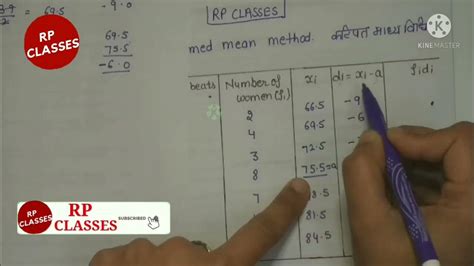 RP CLASSES
-9.0
= 69.5
RP
CLASSES
KINEMASTER
69.5
75.5
-6.0
med mean method: कल्पित माध्य विधि
beats Number of women (fi) xi di = xi-a fidi
2 66.5 -9
4 69.5 -6
3 72.5
8 75.5=a
7 8.5
81.5
84.5
RP
CLASSES
SUBSCRIBED
RP
CLASSES